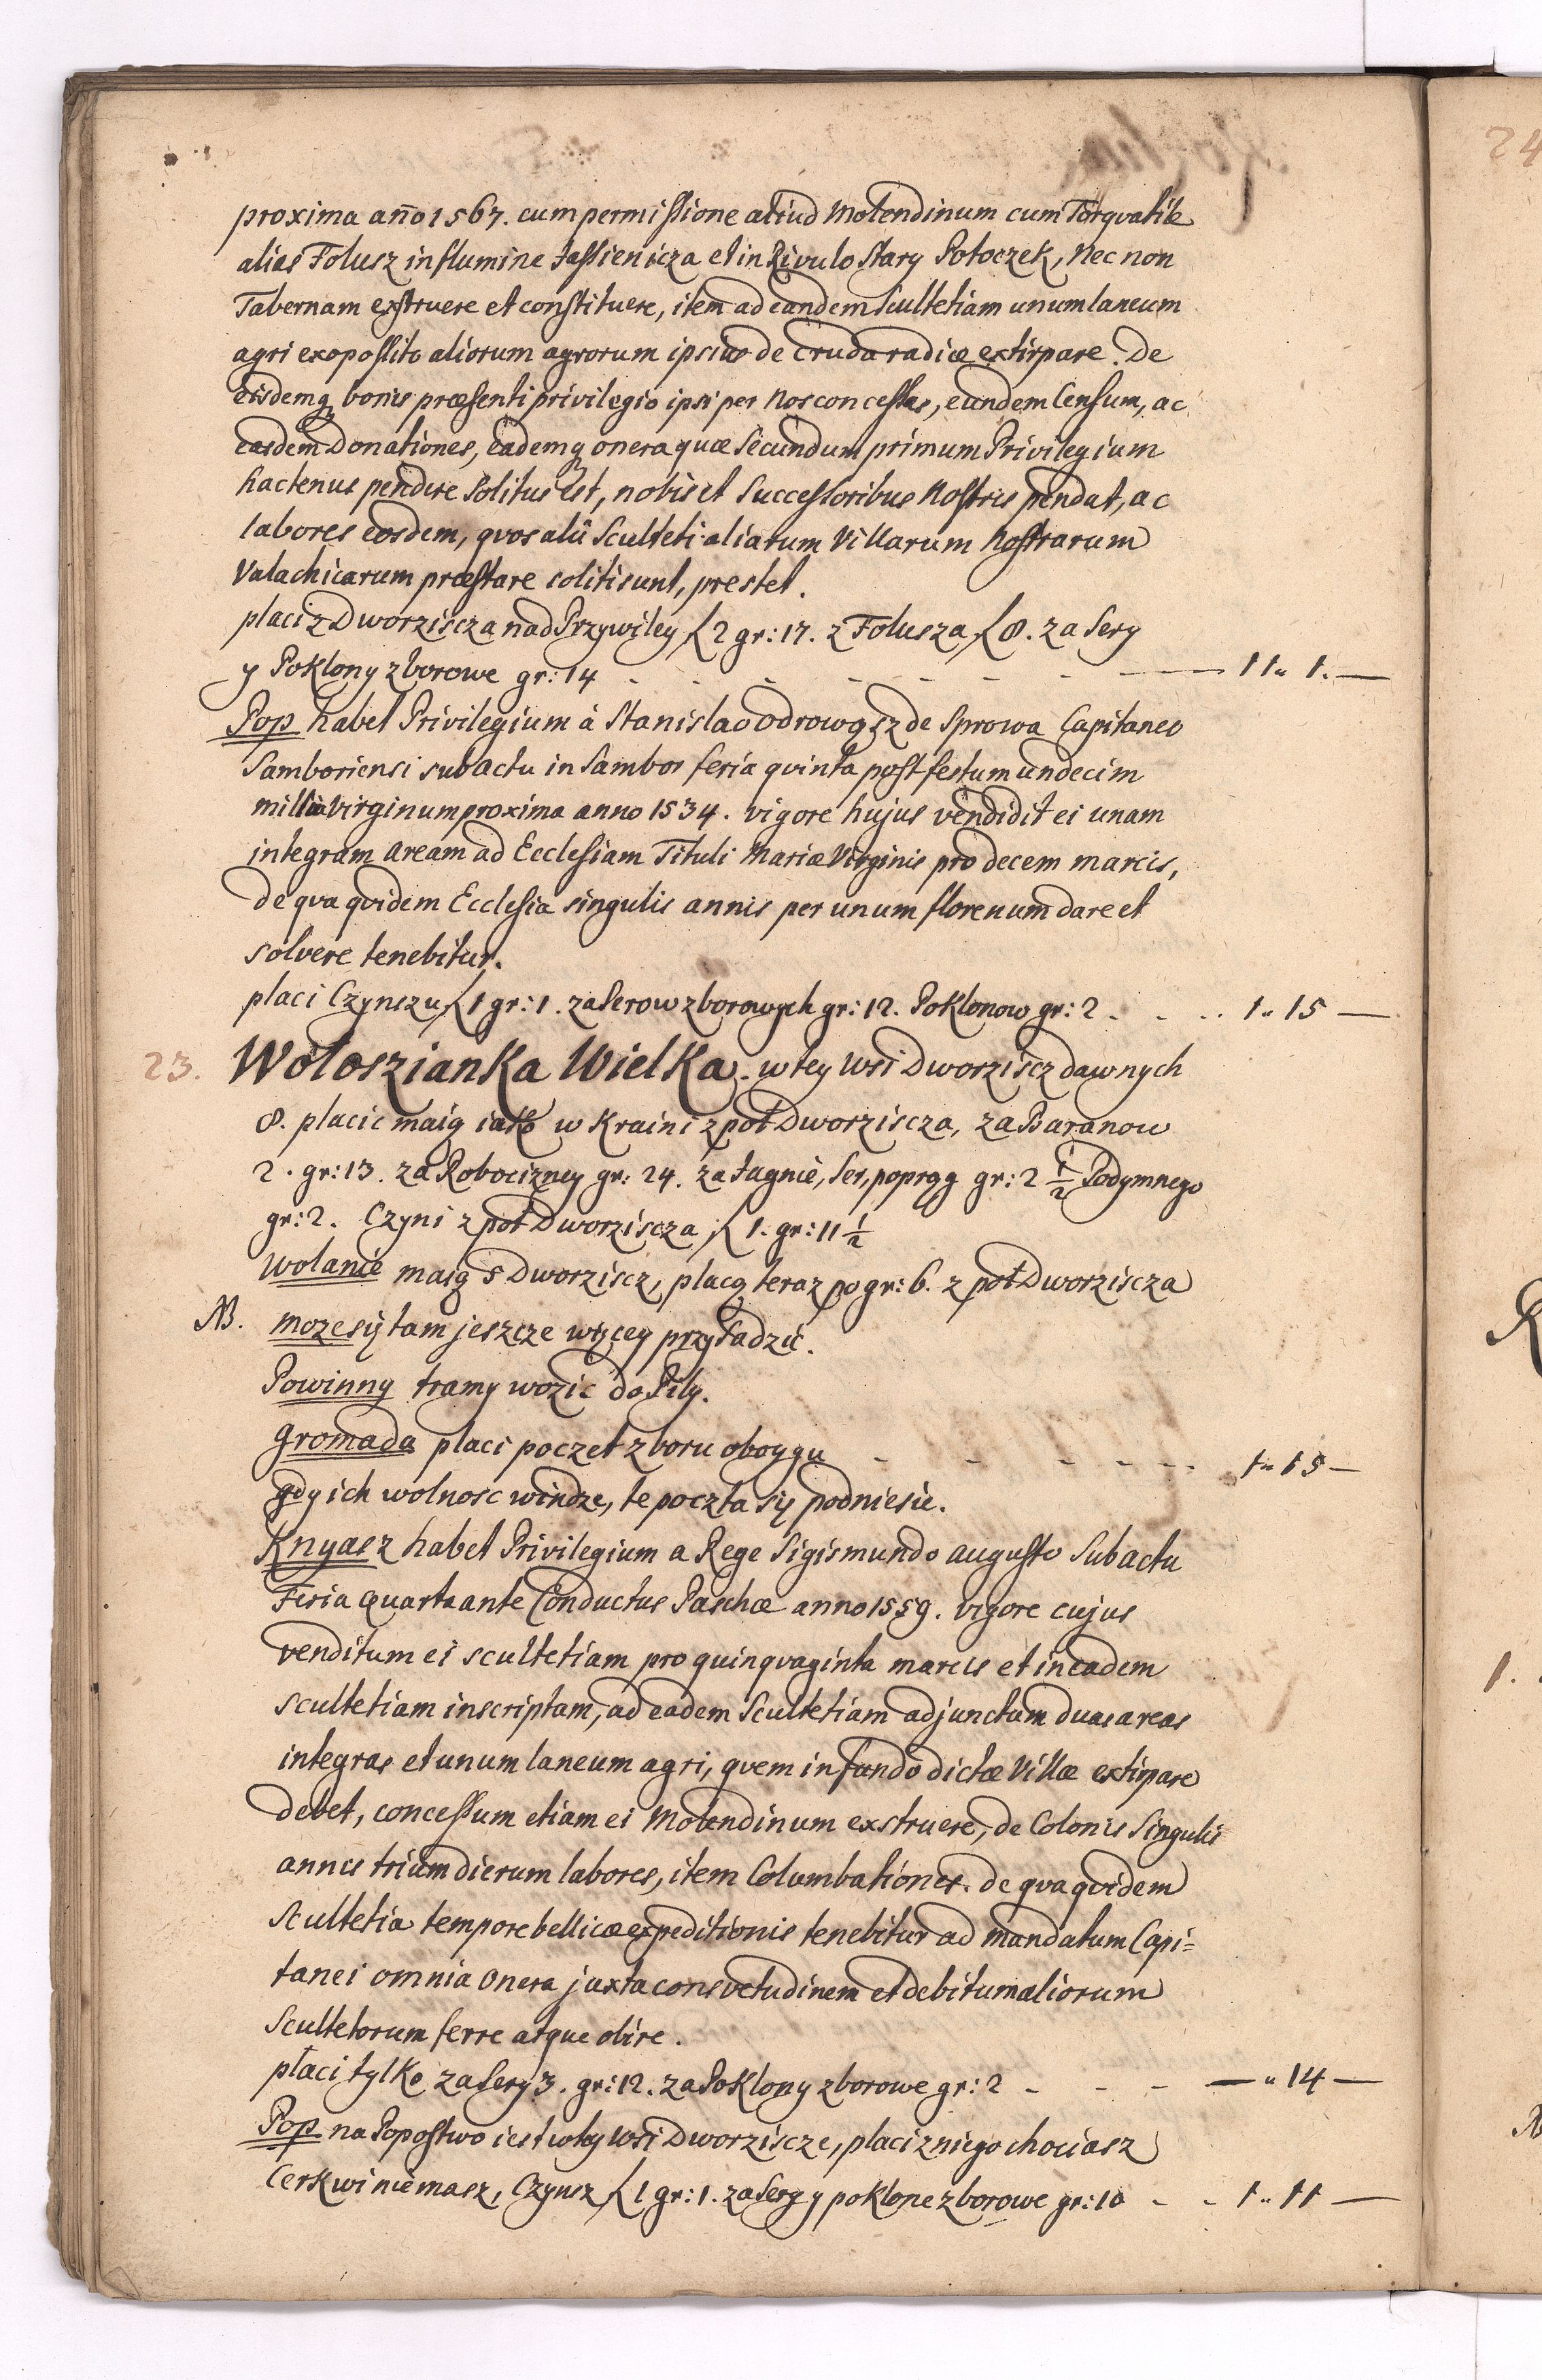 proxima año 1567. cum permissione aliud Molendinum cum Torqvatile
alias Folusz in flumine Jassienicza et in Rivulo Stary Potoczek, nec non
Tabernam exstruere et constituere, item ad eandem Scultetiam unum laneum
agri ex opossito aliorum agrorum ipsius de cruda radice extirpare. De
eisdemq bonis præsenti privilegio ipsi per nos concessis, eundem Censum, ac
easdem Donationes, eademq onera quæ secundum primum Privilegium
hactenus pendere solitus est, nobis et Successoribus Nostris pendat, ac
labores eosdem, qvos alii Sculteti aliarum Villarum Nostrarum
Valachicarum præstare soliti sunt, prestet.
placi z Dworziscza nad Przywiley ƒ 2 gr: 17. z Folusza ƒ 8. za Sery
y Poklony zborowe gr: 14 - - - - - - - 11 " 1. —
Pop habet Privilegium á Stanislao Odrowąsz de Sprowa Capitaneo
Samboriensi sub actu in Sambor feria qvinta post festum undecim
millia Virginum proxima anno 1534. vigore hujus vendidit ei unam
integram aream ad Ecclesiam Tituli Mariæ Virginis pro decem marcis,
de qva qvidem Ecclesia singulis annis per unum florenum dare et
solvere tenebitur.
placi Czynszu ƒ 1 gr: 1. za Serow zborowych gr: 12. Poklonow gr: 2 - - - 1 " 15 —
23. Wołoszianka Wielka. w tey Wsi Dworziscz dawnych
8. placic maią iako w Kraini z poł Dworziscza, za Baranow
2. gr: 13. za Robocizney gr: 24. za Jagnie, Ser, poprąg gr: 2 1/2 Podymnego
gr: 2. Czyni z poł Dworziscza ƒ 1. gr: 11 1/2
Wolanie maią 5 Dworziscz, placą teraz po gr: 6. z poł Dworziscza
NB. moze się tam jeszcze więcey przysadzić.
Powinny tramy wozic do Piły.
Gromada placi poczet zboru oboygu - - - - - 1 " 15 —
gdy ich wolnosc windze, te poczta się podniesie.
Knyasz habet Privilegium a Rege Sigismundo Augusto Sub actu
Feria Quarta ante Conductus Paschæ anno 1559. vigore cujus
venditum ei scultetiam pro quinqvaginta marcis et in eadem
scultetiam inscriptam, ad eadem Scultetiam adjunctum duas areas
integras et unum laneum agri, qvem in fundo dictæ Villæ extirpare
debet, concessum etiam ei Molendinum exstruere, de Colonis Singulis
annis trium dierum labores, item Columbationes. de qva qvidem
Scultetia tempore bellicæ expeditionis tenebitur ad mandatum Capi=
tanei omnia onera juxta consvetudinem et debitum aliorum
Scultetorum ferre atque obire.
płaci tylko za Sery 3. gr: 12. za Poklony zborowe gr: 2 - - - — " 14 —
Pop na Popostwo iest w tey Wsi Dworziscze, placi z niego chociasz
Cerkwi niemasz, Czynsz ƒ 1 gr: 1. za Sery y poklone zborowe gr: 10 - - 1 " 11 —
24
1.